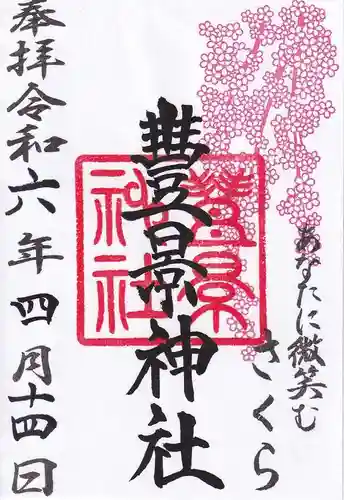 あなたに微笑む
さくら
豐景神社
豐景神社
奉拝令和六年四月十四日